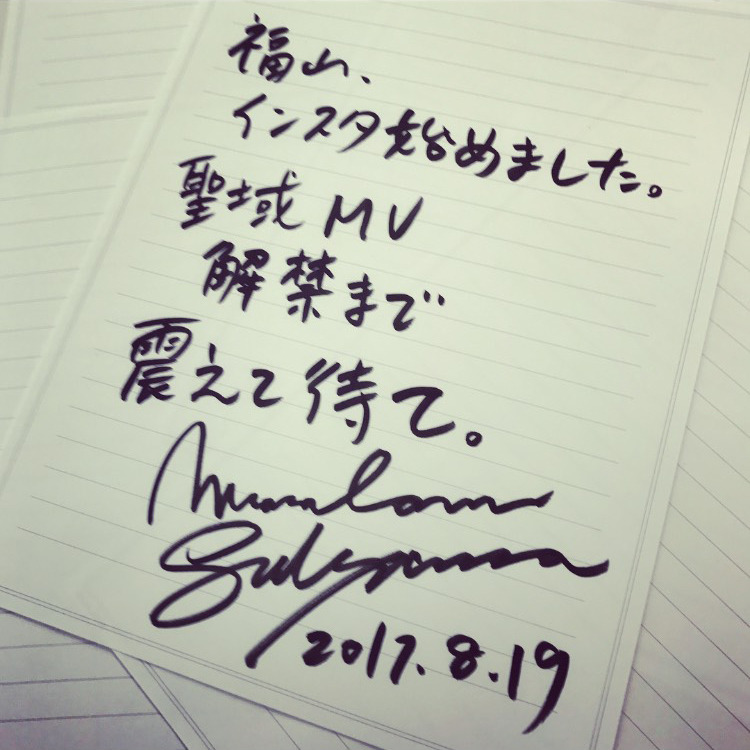 福山、
インスタ始めました。
聖域MV
解禁まで
震えて待て。
2017.8.19